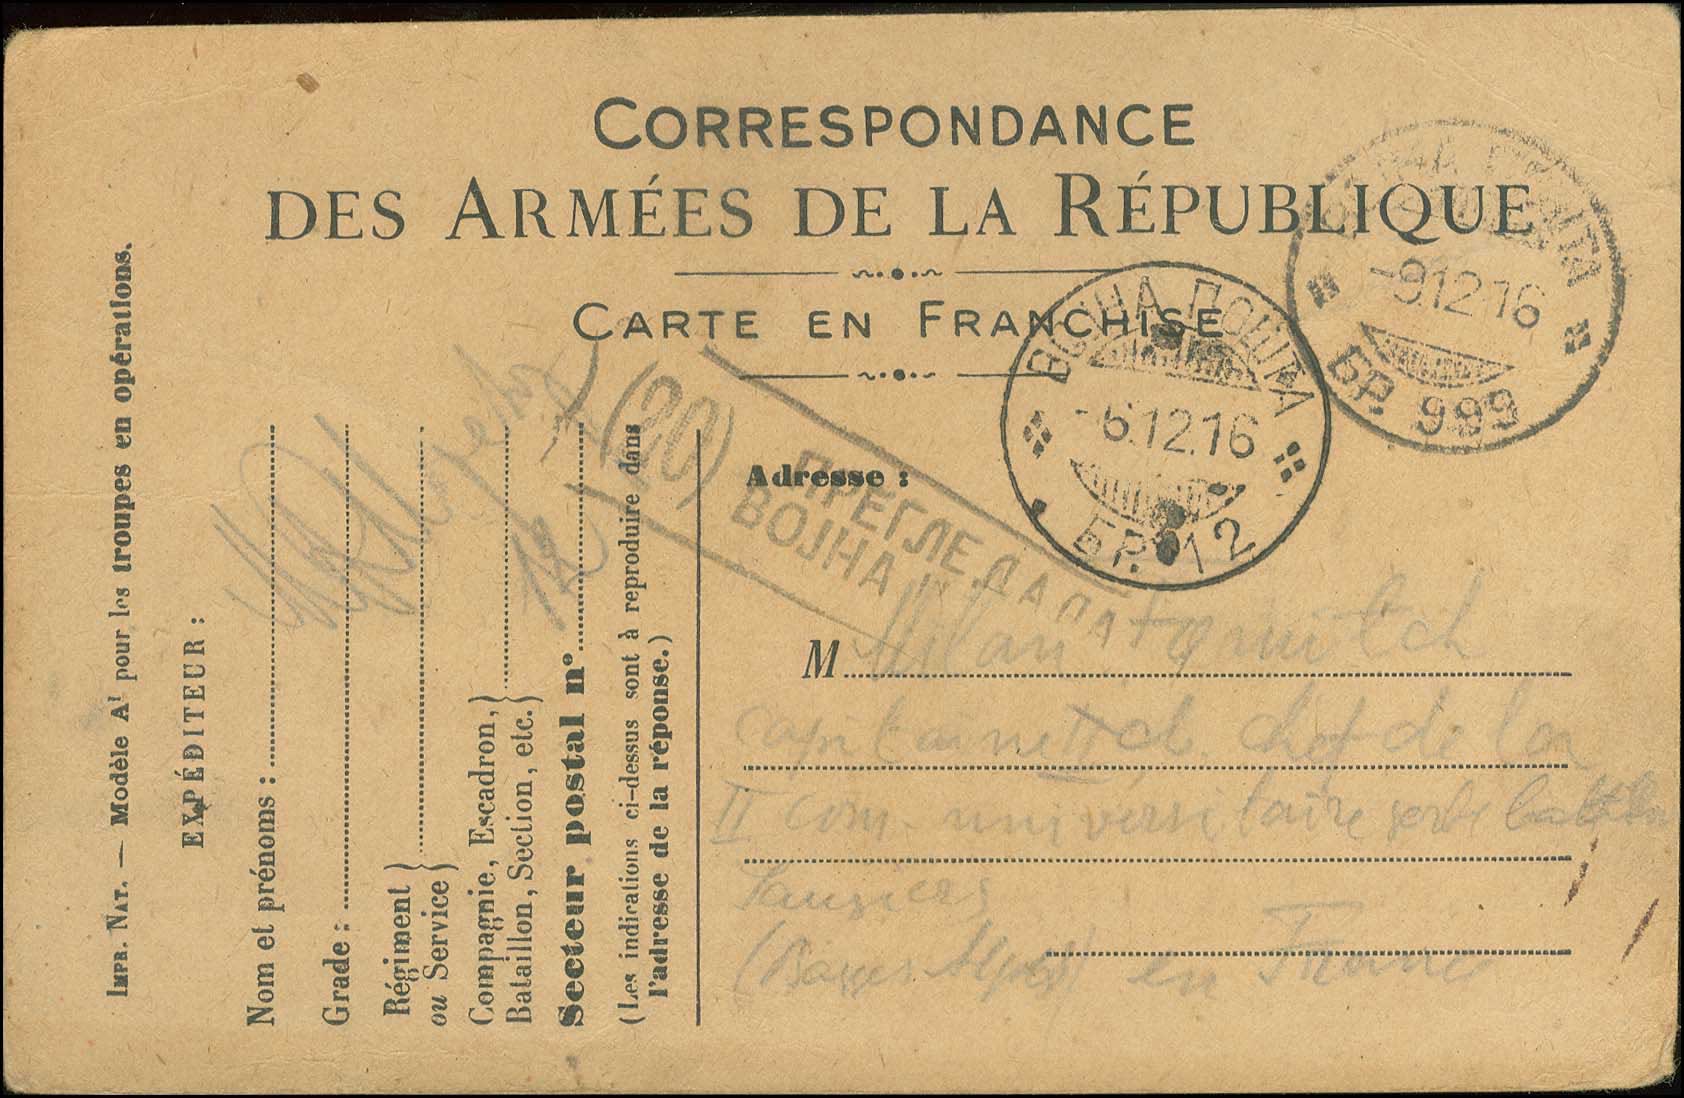 CORRESPONDANCE
DES ARMÉES DE LA RÉPUBLIQUE
CARTE EN FRANCHISE
IMPR. NAT. — Modèle A¹ pour les troupes en opérations.
EXPÉDITEUR :
Nom et prénoms :
Grade :
Régiment
ou Service
Compagnie, Escadron,
Bataillon, Section, etc.
Secteur postal n°
(Les indications ci-dessus sont à reproduire dans
l'adresse de la réponse.)
(20)
ПРЕГЛЕДАЛА
ВОЈНА
ВОЈНА ПОШТА
-6.12.16
БР. 12
ВОЈНА ПОШТА
-9.12.16
БР. 999
Adresse :
M Milan
chef de la
II com universitaire serbe
(Basses Alpes) en France